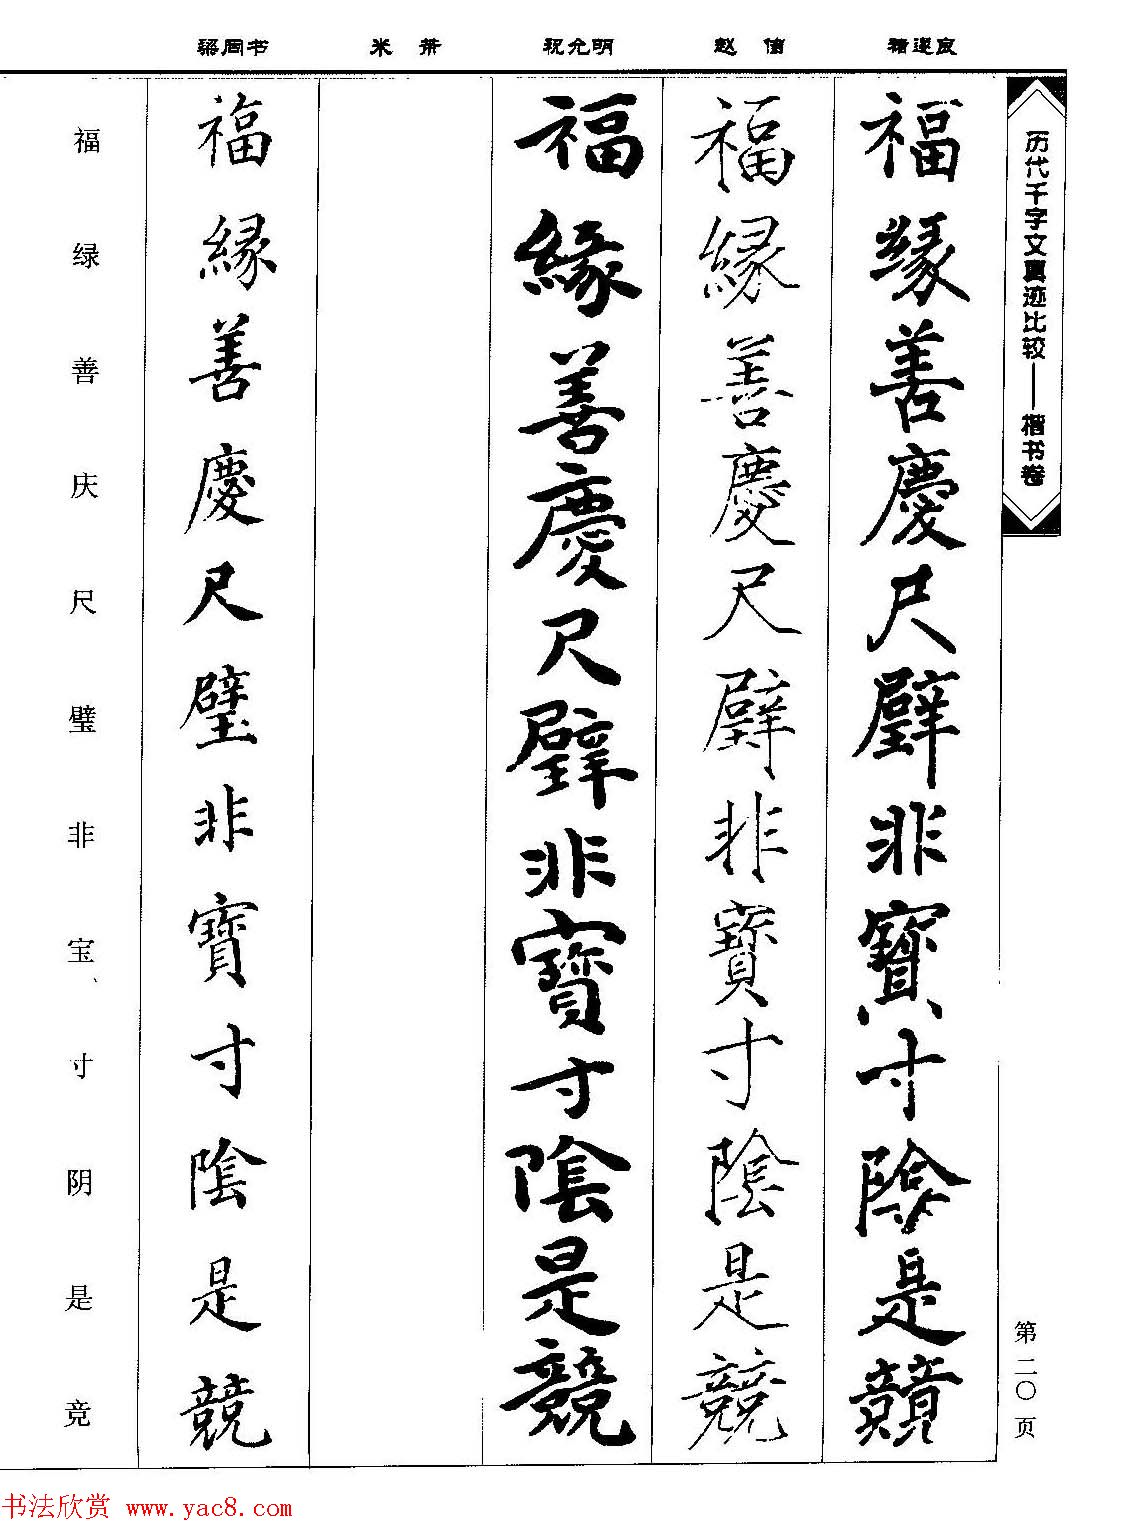 褚遂良
赵佶
祝允明
米芾
梁同书
历代千字文真迹比较——楷书卷
第二〇页
福緣善慶尺璧非寶寸陰是競
福緣善慶尺璧非寶寸陰是競
福緣善慶尺璧非寶寸陰是競
福緣善慶尺璧非寶寸陰是競
福绿善庆尺璧非宝、寸阴是竞
书法欣赏 www.yac8.com